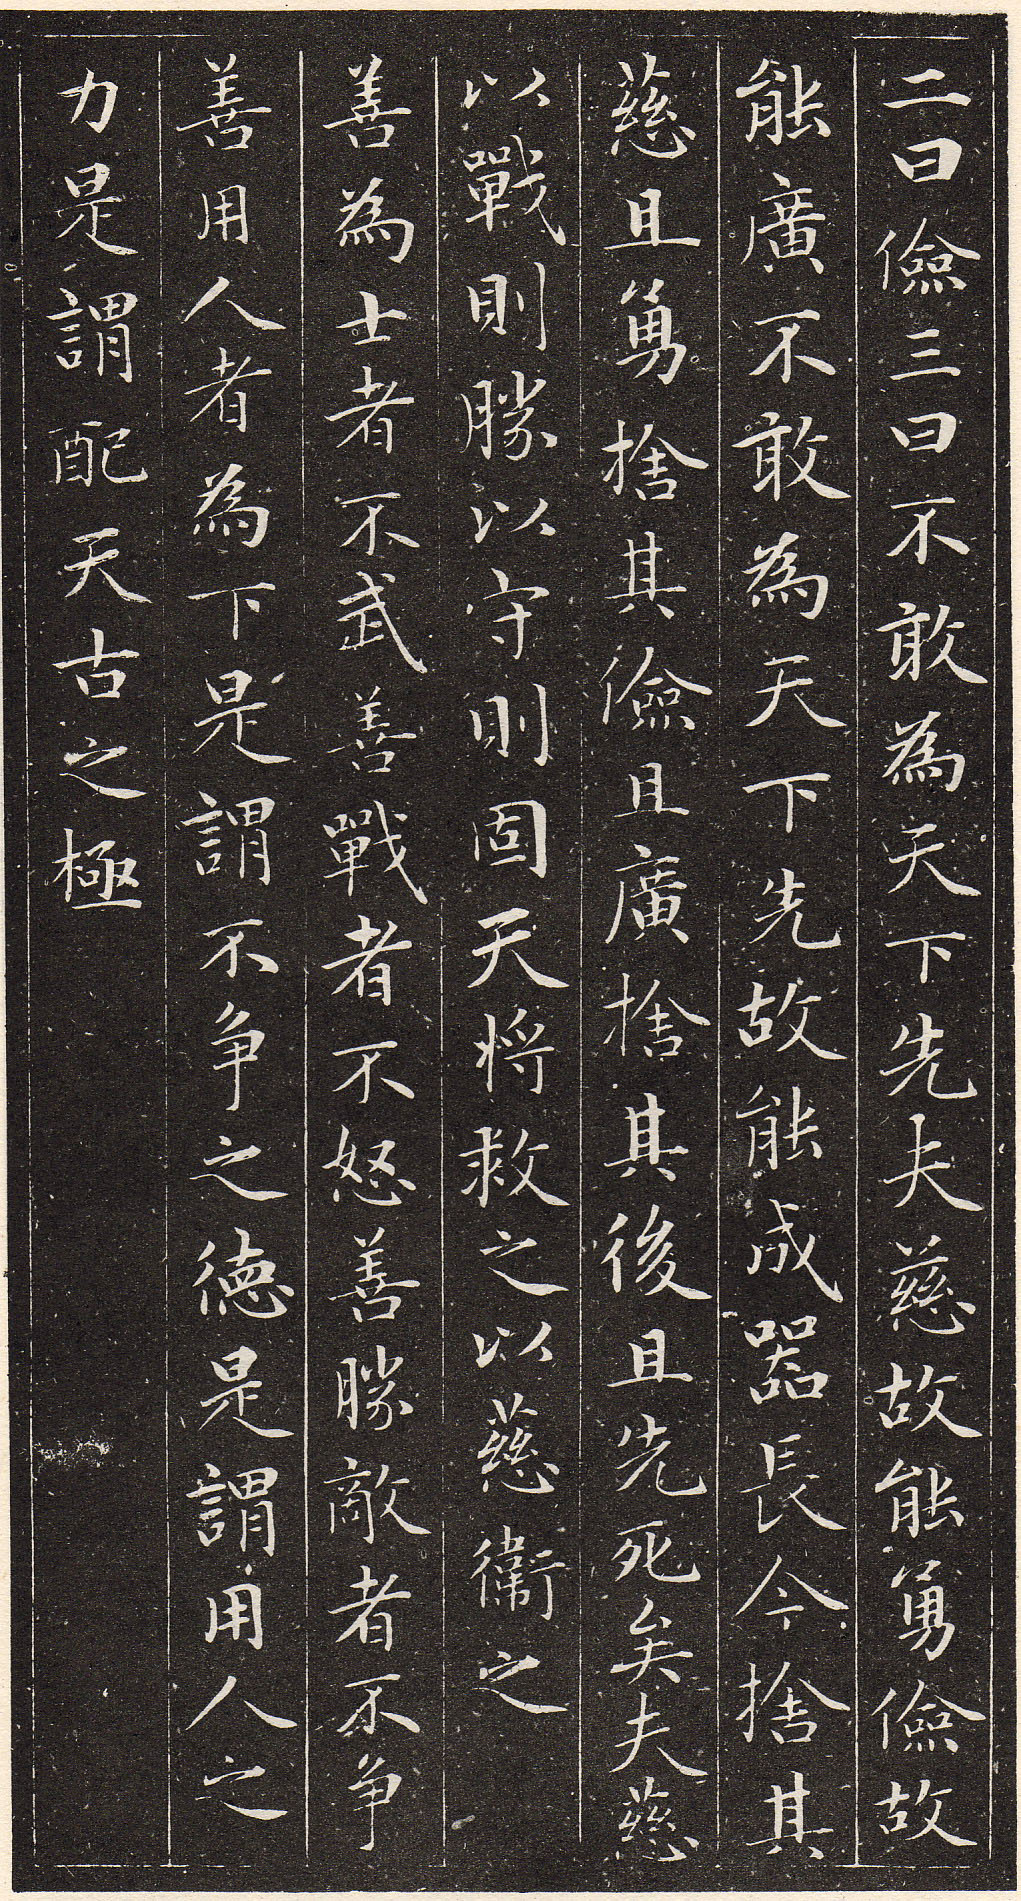 二曰儉三曰不敢為天下先夫慈故能勇儉故
能廣不敢為天下先故能成器長今捨其
慈且勇捨其儉且廣捨其後且先死矣夫慈
以戰則勝以守則固天将救之以慈衛之
善為士者不武善戰者不怒善勝敵者不争
善用人者為下是謂不争之德是謂用人之
力是謂配天古之極